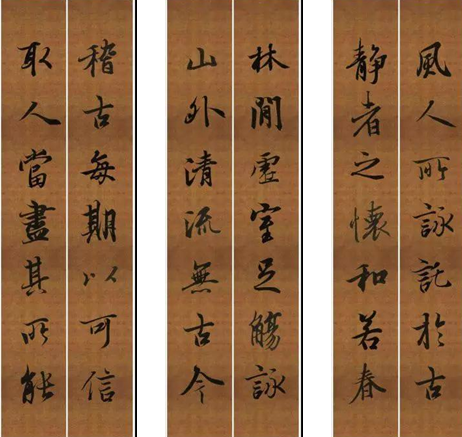 風人所詠託於古
靜者之懷和若春
林閒虛室足觴詠
山外清流無古今
稽古每期以可信
取人當盡其所能